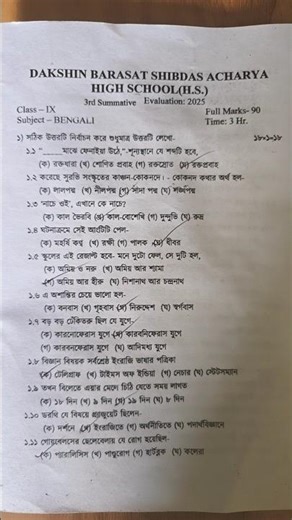 DAKSHIN BARASAT SHIBDAS ACHARYA
HIGH SCHOOL(H.S.)
3rd Summative Evaluation: 2025
Class – IX Full Marks- 90
Subject – BENGALI Time: 3 Hr.
১) সঠিক উত্তরটি নির্বাচন করে শুধুমাত্র উত্তরটি লেখো- ১৮×১=১৮
১.১ "_____মাঝে ফেনাইয়া উঠে,"-শূন্যস্থানে যে শব্দটি হবে,
(ক) রক্তধারা (খ) শোণিত প্রবাহ (গ) রক্তস্রোত (ঘ) রক্তপ্রবাহ
১.২ করেছে সুরভি সংস্কৃতের কাঞ্চন-কোকনদে। - কোকনদ কথার অর্থ হল-
(ক) লালপদ্ম (খ) নীলপদ্ম (গ) সাদা পদ্ম (ঘ)
১.৩ 'নাচে ওই', এখানে কে নাচে?
(ক) কাল ভৈরবি (খ) কাল-বোশেখি (গ) দুন্দুভি (ঘ) রুদ্র
১.৪ ঘটনাক্রমে সেই আংটিটি পেল-
(ক) মহর্ষি কণ্ব (খ) রক্ষী (গ) পালক (ঘ) ধীবর
১.৫ স্কুলের এই রেজাল্ট হবে- মনে দুটো ফেল, সে দুটি হল,
(ক) অমিয় ও নরু (খ) অমিয় আর শ্যামা
(গ) অমিয় আর হীরু (ঘ) নিশানাথ আর চন্দ্রনাথ
১.৬ এ অশান্তির চেয়ে ভালো হল-
(ক) বনবাস (খ) গৃহবাস (গ) নিরুদ্দেশ (ঘ) স্বর্গবাস
১.৭ বড় বড় টেঁকিতরু ছিল যে যুগে-
(ক) কারনোফেরাস যুগে (খ) কারবনিফেরাস যুগে
(গ) কারবনফেরাস যুগে (ঘ) আদিমধ্য যুগে
১.৮ বিজ্ঞান বিষয়ক সর্বশ্রেষ্ঠ ইংরাজি ভাষার পত্রিকা
(ক) টেলিগ্রাফ (খ) টাইমস অফ ইন্ডিয়া (গ) নেচার (ঘ) স্টেটসম্যান
১.৯ তখন বিলেতে এয়ার মেলে চিঠি যেতে সময় লাগত
(ক) ১৮ দিন (খ) ৯ দিন (গ) ১৯ দিন (ঘ) ৮ দিন
১.১০ ডরথি যে বিষয়ে গ্র্যাজুয়েট ছিলেন-
(ক) দর্শনে (খ) ইংরাজিতে (গ) অর্থনীতিতে (ঘ) পদার্থবিজ্ঞানে
১.১১ গোয়েবলসের ছেলেবেলায় যে রোগ হয়েছিল-
(ক) প্যারালিসিস (খ) পান্ডুরোগ (গ) হার্টব্লক (ঘ) কলেরা